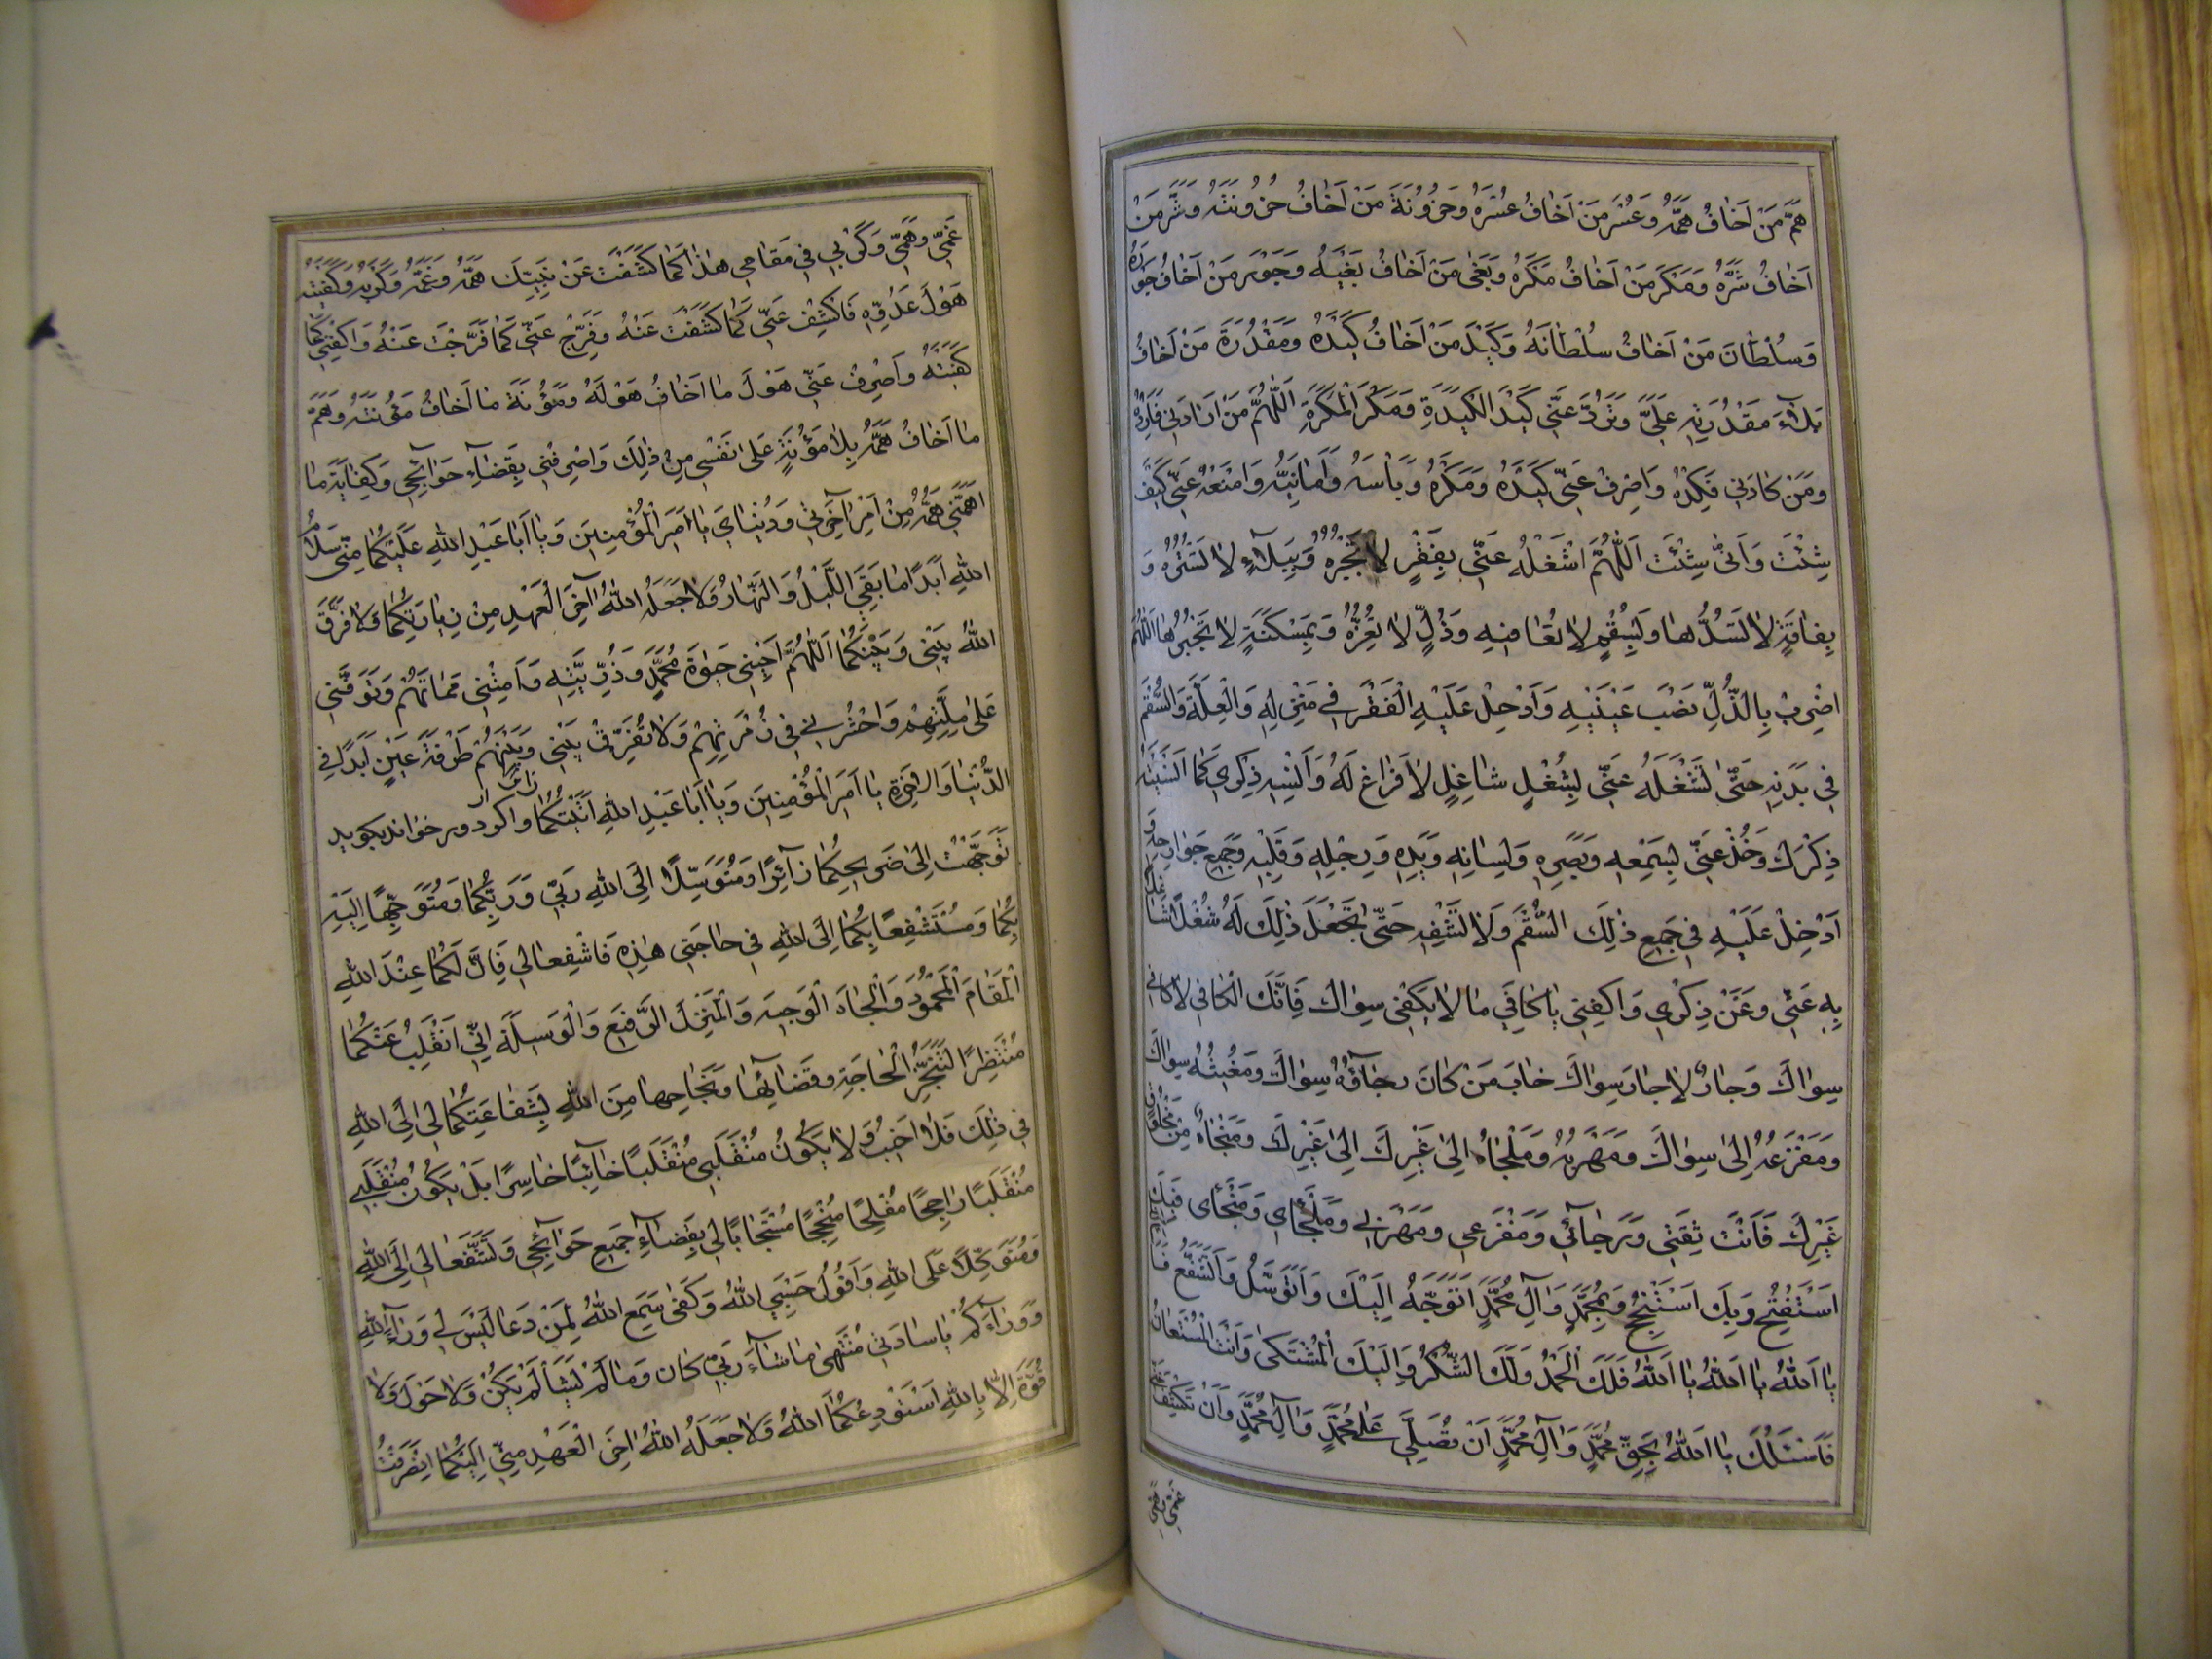 هَمَّ مَنْ اَخٰافُ هَمَّهُ وَعُسْرَ مَنْ اَخٰافُ عُسْرَهُ وَحُزُونَةَ مَنْ اَخٰافُ حُزُونَتَهُ وَشَرَّ مَنْ
اَخٰافُ شَرَّهُ وَمَكْرَ مَنْ اَخٰافُ مَكْرَهُ وَبَغْىَ مَنْ اَخٰافُ بَغْيَهُ وَجَوْرَ مَنْ اَخٰافُ جَوْرَهُ
وَسُلْطٰانَ مَنْ اَخٰافُ سُلْطٰانَهُ وَكَيْدَ مَنْ اَخٰافُ كَيْدَهُ وَمَقْدُرَةَ مَنْ اَخٰافُ
مَقْدُرَتِهِ عَلَىَّ وَتَرُدَّ عَنّى كَيْدَ الْكَيَدَةِ وَمَكْرَ الْمَكَرَةِ اَللّٰهُمَّ مَنْ اَرٰادَنى فَاَرِدْهُ
وَمَنْ كٰادَنى فَكِدْهُ وَاصْرِفْ عَنّى كَيْدَهُ وَمَكْرَهُ وَبَاْسَهُ وَاَمٰانِيَّهُ وَامْنَعْهُ عَنّى كَيْفَ
شِئْتَ وَاَنّىٰ شِئْتَ اَللّٰهُمَّ اشْغَلْهُ عَنّى بِفَقْرٍ لاٰ تَجْبُرُهُ وَبِبَلاٰءٍ لاٰ تَسْتُرُهُ وَ
بِفٰاقَةٍ لاٰ تَسُدُّهٰا وَبِسُقْمٍ لاٰ تُعٰافيهِ وَذُلٍّ لاٰ تُعِزُّهُ وَبِمَسْكَنَةٍ لاٰ تَجْبُرُهٰا اَللّٰهُمَّ
اضْرِبْ بِالذُّلِّ نَصْبَ عَيْنَيْهِ وَاَدْخِلْ عَلَيْهِ الْفَقْرَ فى مَنْزِلِهِ وَالْعِلَّةَ وَالسُّقْمَ
فى بَدَنِهِ حَتّىٰ تَشْغَلَهُ عَنّى بِشُغْلٍ شٰاغِلٍ لاٰ فَرٰاغَ لَهُ وَاَنْسِهِ ذِكْرى كَمٰا اَنْسَيْتَهُ
ذِكْرَكَ وَخُذْ عَنّى بِسَمْعِهِ وَبَصَرِهِ وَلِسٰانِهِ وَيَدِهِ وَرِجْلِهِ وَقَلْبِهِ وَجَميعِ جَوٰارِحِهِ وَ
اَدْخِلْ عَلَيْهِ فى جَميعِ ذٰلِكَ السُّقْمَ وَلاٰ تَشْفِهِ حَتّىٰ تَجْعَلَ ذٰلِكَ لَهُ شُغْلاً شٰاغِلاً
بِهِ عَنّى وَعَنْ ذِكْرى وَاكْفِنى يٰا كٰافِىَ مٰا لاٰ يَكْفى سِوٰاكَ فَاِنَّكَ الْكٰافى لاٰ كٰافِىَ
سِوٰاكَ وَجٰارٌ لاٰ جٰارَ سِوٰاكَ خٰابَ مَنْ كٰانَ رَجٰآؤُهُ سِوٰاكَ وَمُغيثُهُ سِوٰاكَ
وَمَفْزَعُهُ اِلىٰ سِوٰاكَ وَمَهْرَبُهُ وَمَلْجَاُهُ اِلىٰ غَيْرِكَ وَمَنْجٰاهُ مِنْ مَخْلُوقٍ
غَيْرِكَ فَاَنْتَ ثِقَتى وَرَجٰآئى وَمَفْزَعى وَمَهْرَبى وَمَلْجَاى وَمَنْجٰاىَ فَبِكَ
اَسْتَفْتِحُ وَبِكَ اَسْتَنْجِحُ وَبِمُحَمَّدٍ وَآلِ مُحَمَّدٍ اَتَوَجَّهُ اِلَيْكَ وَاَتَوَسَّلُ وَاَتَشَفَّعُ
يٰا اَللهُ يٰا اَللهُ يٰا اَللهُ فَلَكَ الْحَمْدُ وَلَكَ الشُّكْرُ وَاِلَيْكَ الْمُشْتَكىٰ وَاَنْتَ الْمُسْتَعٰانُ
فَاَسْئَلُكَ يٰا اَللهُ بِحَقِّ مُحَمَّدٍ وَآلِ مُحَمَّدٍ اَنْ تُصَلِّىَ عَلىٰ مُحَمَّدٍ وَآلِ مُحَمَّدٍ وَاَنْ تَكْشِفَ عَنّى
غَمّى وَهَمّى
غَمّى وَهَمّى وَكَرْبى فى مَقٰامى هٰذٰا كَمٰا كَشَفْتَ عَنْ نَبِيِّكَ هَمَّهُ وَغَمَّهُ وَكَرْبَهُ وَكَفَيْتَهُ
هَوْلَ عَدُوِّهِ فَاكْشِفْ عَنّى كَمٰا كَشَفْتَ عَنْهُ وَفَرِّجْ عَنّى كَمٰا فَرَّجْتَ عَنْهُ وَاكْفِنى كَمٰا
كَفَيْتَهُ وَاصْرِفْ عَنّى هَوْلَ مٰا اَخٰافُ هَوْلَهُ وَمَؤُنَةَ مٰا اَخٰافُ مَؤُنَتَهُ وَهَمَّ
مٰا اَخٰافُ هَمَّهُ بِلاٰ مَؤُنَةٍ عَلىٰ نَفْسى مِنْ ذٰلِكَ وَاصْرِفْنى بِقَضٰآءِ حَوٰآئِجى وَكِفٰايَةِ مٰا
اَهَمَّنى هَمُّهُ مِنْ اَمْرِ آخِرَتى وَدُنْيٰاىَ يٰا اَميرَ الْمُؤْمِنينَ وَيٰا اَبٰا عَبْدِ اللهِ عَلَيْكُمٰا مِنّى سَلاٰمُ
اللهِ اَبَدًا مٰا بَقِىَ اللَّيْلُ وَالنَّهٰارُ وَلاٰ جَعَلَهُ اللهُ آخِرَ الْعَهْدِ مِنْ زِيٰارَتِكُمٰا وَلاٰ فَرَّقَ
اللهُ بَيْنى وَبَيْنَكُمٰا اَللّٰهُمَّ اَحْيِنى حَيٰوةَ مُحَمَّدٍ وَذُرِّيَّتِهِ وَاَمِتْنى مَمٰاتَهُمْ وَتَوَفَّنى
عَلىٰ مِلَّتِهِمْ وَاحْشُرْنى فى زُمْرَتِهِمْ وَلاٰ تُفَرِّقْ بَيْنى وَبَيْنَهُمْ طَرْفَةَ عَيْنٍ اَبَدًا فِى
الدُّنْيٰا وَالْآخِرَةِ يٰا اَميرَ الْمُؤْمِنينَ وَيٰا اَبٰا عَبْدِ اللهِ اَتَيْتُكُمٰا واكر دور خواند بكويد
تَوَجَّهْتُ اِلىٰ ضَريحِكُمٰا زٰآئِرًا وَمُتَوَسِّلاً اِلَى اللهِ رَبّى وَرَبِّكُمٰا وَمُتَوَجِّهًا اِلَيْهِ
بِكُمٰا وَمُسْتَشْفِعًا بِكُمٰا اِلَى اللهِ فى حٰاجَتى هٰذِهِ فَاشْفَعٰا لى فَاِنَّ لَكُمٰا عِنْدَ اللهِ
الْمَقٰامَ الْمَحْمُودَ وَالْجٰاهَ الْوَجيهَ وَالْمَنْزِلَ الرَّفيعَ وَالْوَسيلَةَ اِنّى اَنْقَلِبُ عَنْكُمٰا
مُنْتَظِرًا لِتَنَجُّزِ الْحٰاجَةِ وَقَضٰآئِهٰا وَنَجٰاحِهٰا مِنَ اللهِ بِشَفٰاعَتِكُمٰا لى اِلَى اللهِ
فى ذٰلِكَ فَلاٰ اَخيبُ وَلاٰ يَكُونُ مُنْقَلَبى مُنْقَلَبًا خٰآئِبًا خٰاسِرًا بَلْ يَكُونُ مُنْقَلَبى
مُنْقَلَبًا رٰاجِحًا مُفْلِحًا مُنْجِحًا مُسْتَجٰابًا لى بِقَضٰآءِ جَميعِ حَوٰآئِجى وَتَشَفَّعٰا لى اِلَى اللهِ
وَمُتَوَكِّلاً عَلَى اللهِ وَاَقُولُ حَسْبِىَ اللهُ وَكَفىٰ سَمِعَ اللهُ لِمَنْ دَعٰا لَيْسَ لى وَرٰآءَ اللهِ
وَوَرٰآءَكُمْ يٰا سٰادَتى مُنْتَهىٰ مٰا شٰآءَ رَبّى كٰانَ وَمٰا لَمْ يَشَأْ لَمْ يَكُنْ وَلاٰ حَوْلَ وَلاٰ
قُوَّةَ اِلاّٰ بِاللهِ اَسْتَوْدِعُكُمَا اللهَ وَلاٰ جَعَلَهُ اللهُ آخِرَ الْعَهْدِ مِنّى اِلَيْكُمٰا اِنْصَرَفْتُ